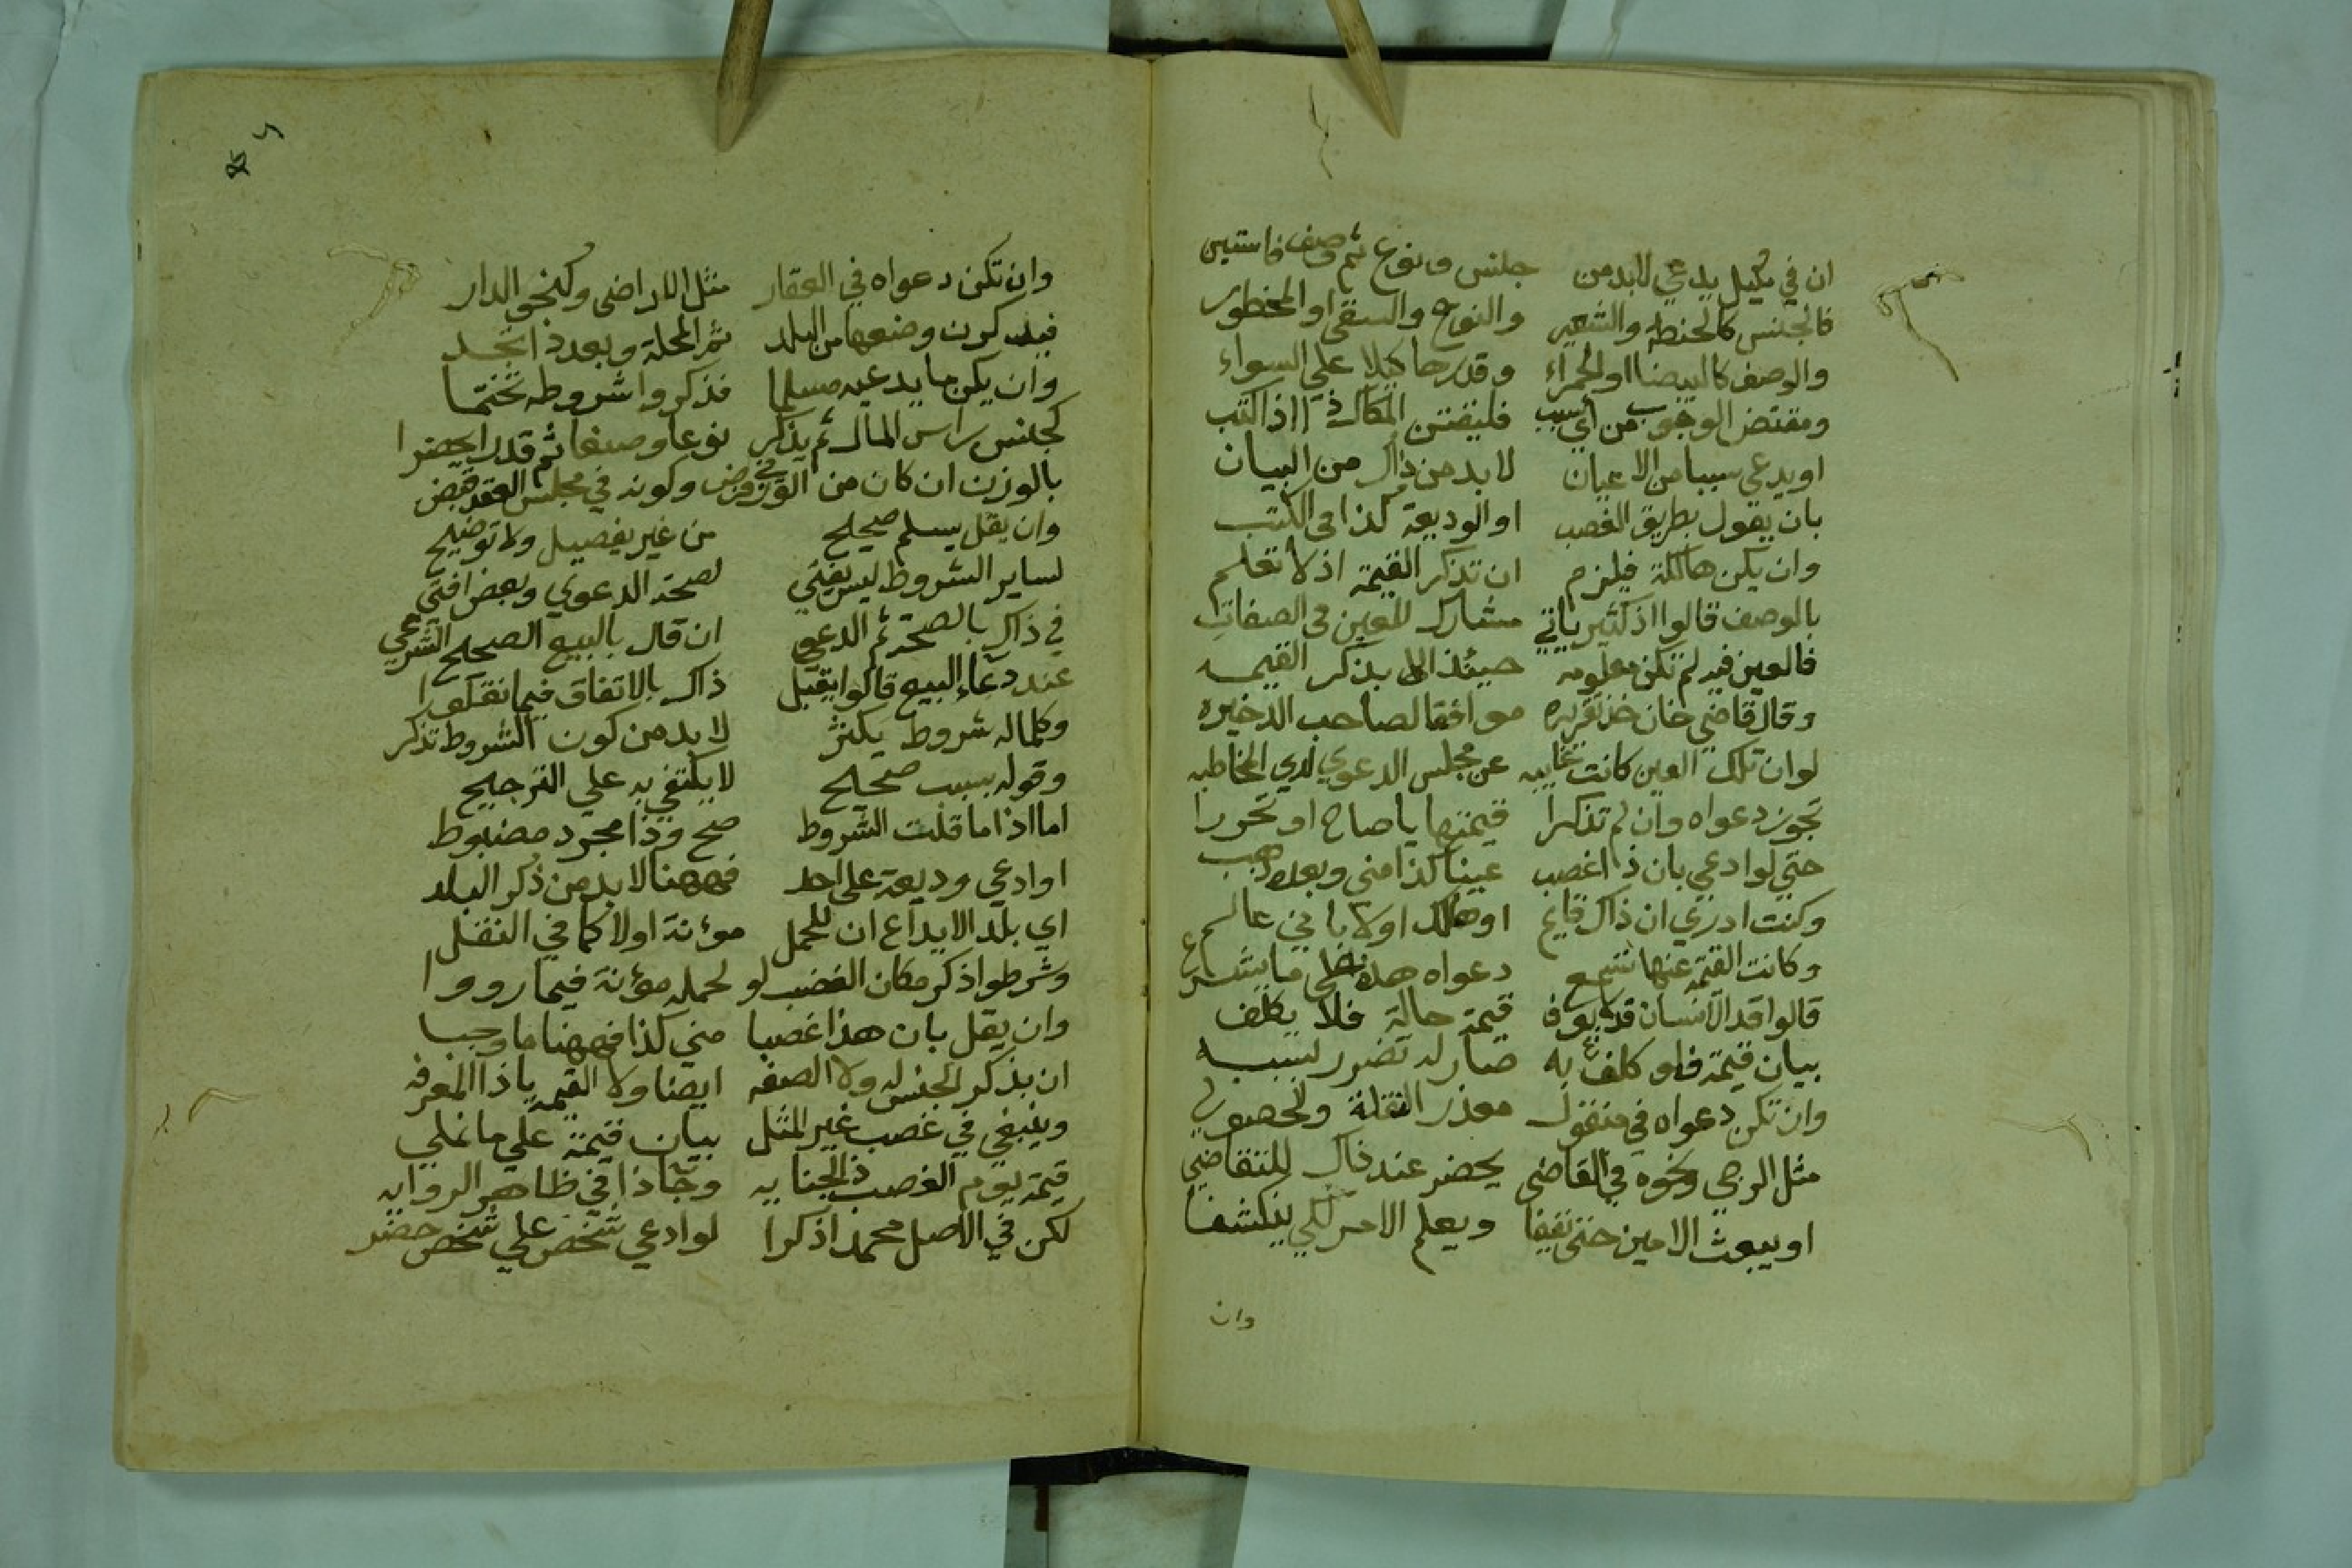 ان في مكيل يدعي لابد من جنس ونوع ثم وصف فاستبن
فالجنس كالحنطة والشعير والنوع والسقي او المخطور
والوصف كالبيضا او الحمراء وقدرها كيلا علي السواء
ومقتض الوجوب من أي سبب فليفتن اذا كتب
او يدعي سببا من الاعيان لابد من ذاك من البيان
بان يقول بطريق الغصب او الوديعة كذا في الكتب
وان يكن هالكة فيلزم ان تذكر القيمة اذ لا تعلم
بالوصف قالوا اذ كثير ياتي مشارك للعين في الصفات
فالعين فيه لم تكن معلومه حينئذ الا بذكر القيمه
وقال قاضي خان خذ تقريره موافقا لصاحب الذخيره
لو ان تلك العين كانت غايبه عن مجلس الدعوي لدي المخاطبه
تجوز دعواه وان لم تذكرا قيمتها يا صاح او تحررا
حتي لو ادعي بان ذا غصب عينا كذا مني وبعده
وكنت ادري ان ذاك قايم او هالك اولا باني عالم
وكانت القيمة عنها تسمع دعواه هذه علي ما يشرع
قالوا قد الانسان قد لا يعرف قيمة حاله فلا يكلف
بيان قيمة فلو كلف به صار له تضرر بسببه
وان تكن دعواه في منقول معذر النقلة والحصول
مثل الرحي ونحوه في القاضي يحضر عند ذاك للتقاضي
او يبعث الامين حتى يقفا ويعلم الامر لكي ينكشفا
وان
وان تكن دعواه في العقار مثل الاراضي وكنحو الدار
فيذكرن وضعها من البلد ثم المحلة وبعد ذا تحد
وان يكن ما يدعيه سلما فذكروا شروطه تحتما
كجنس راس المال ثم يذكر نوعا وصفا ثم قدرا يحضرا
بالوزن ان كان من الوزن وكونه في مجلس العقد قبض
وان يقل بسلم صحيح من غير تفصيل ولا توضيح
لساير الشروط ليس يفتي لصحة الدعوي وبعض افتي
في ذاك بالصحة ثم الدعي ان قال بالبيع الصحيح الشرعي
عند دعاء البيع قالوا يقبل ذاك بالاتفاق فيما نقلوا
وكلما له شروط يكثر لا بد من كون الشروط تذكر
وقوله بسبب صحيح لا يكتفي به علي الترجيح
اما اذا ما قلت الشروط صح وذا مجرد مضبوط
او ادعي وديعة علي احد فههنا لا بد من ذكر البلد
اي بلد الايداع ان للحمل مؤنة اولا كما في النقل
وشرطوا ذكر مكان الغصب لو لحمله مؤنة فيما رووا
وان يقل بان هذا غصبا مني كذا فههنا ما وجبا
ان يذكر الجنس له ولا الصفه ايضا ولا القيمه يا ذا المعرفه
وينبغي في غصب غير المثل بيان قيمة علي ما نملي
قيمة يوم الغصب ذي الجنايه وجا ذا في ظاهر الروايه
لكن في الاصل محمد اذكرا لو ادعي شخص علي شخص حضر